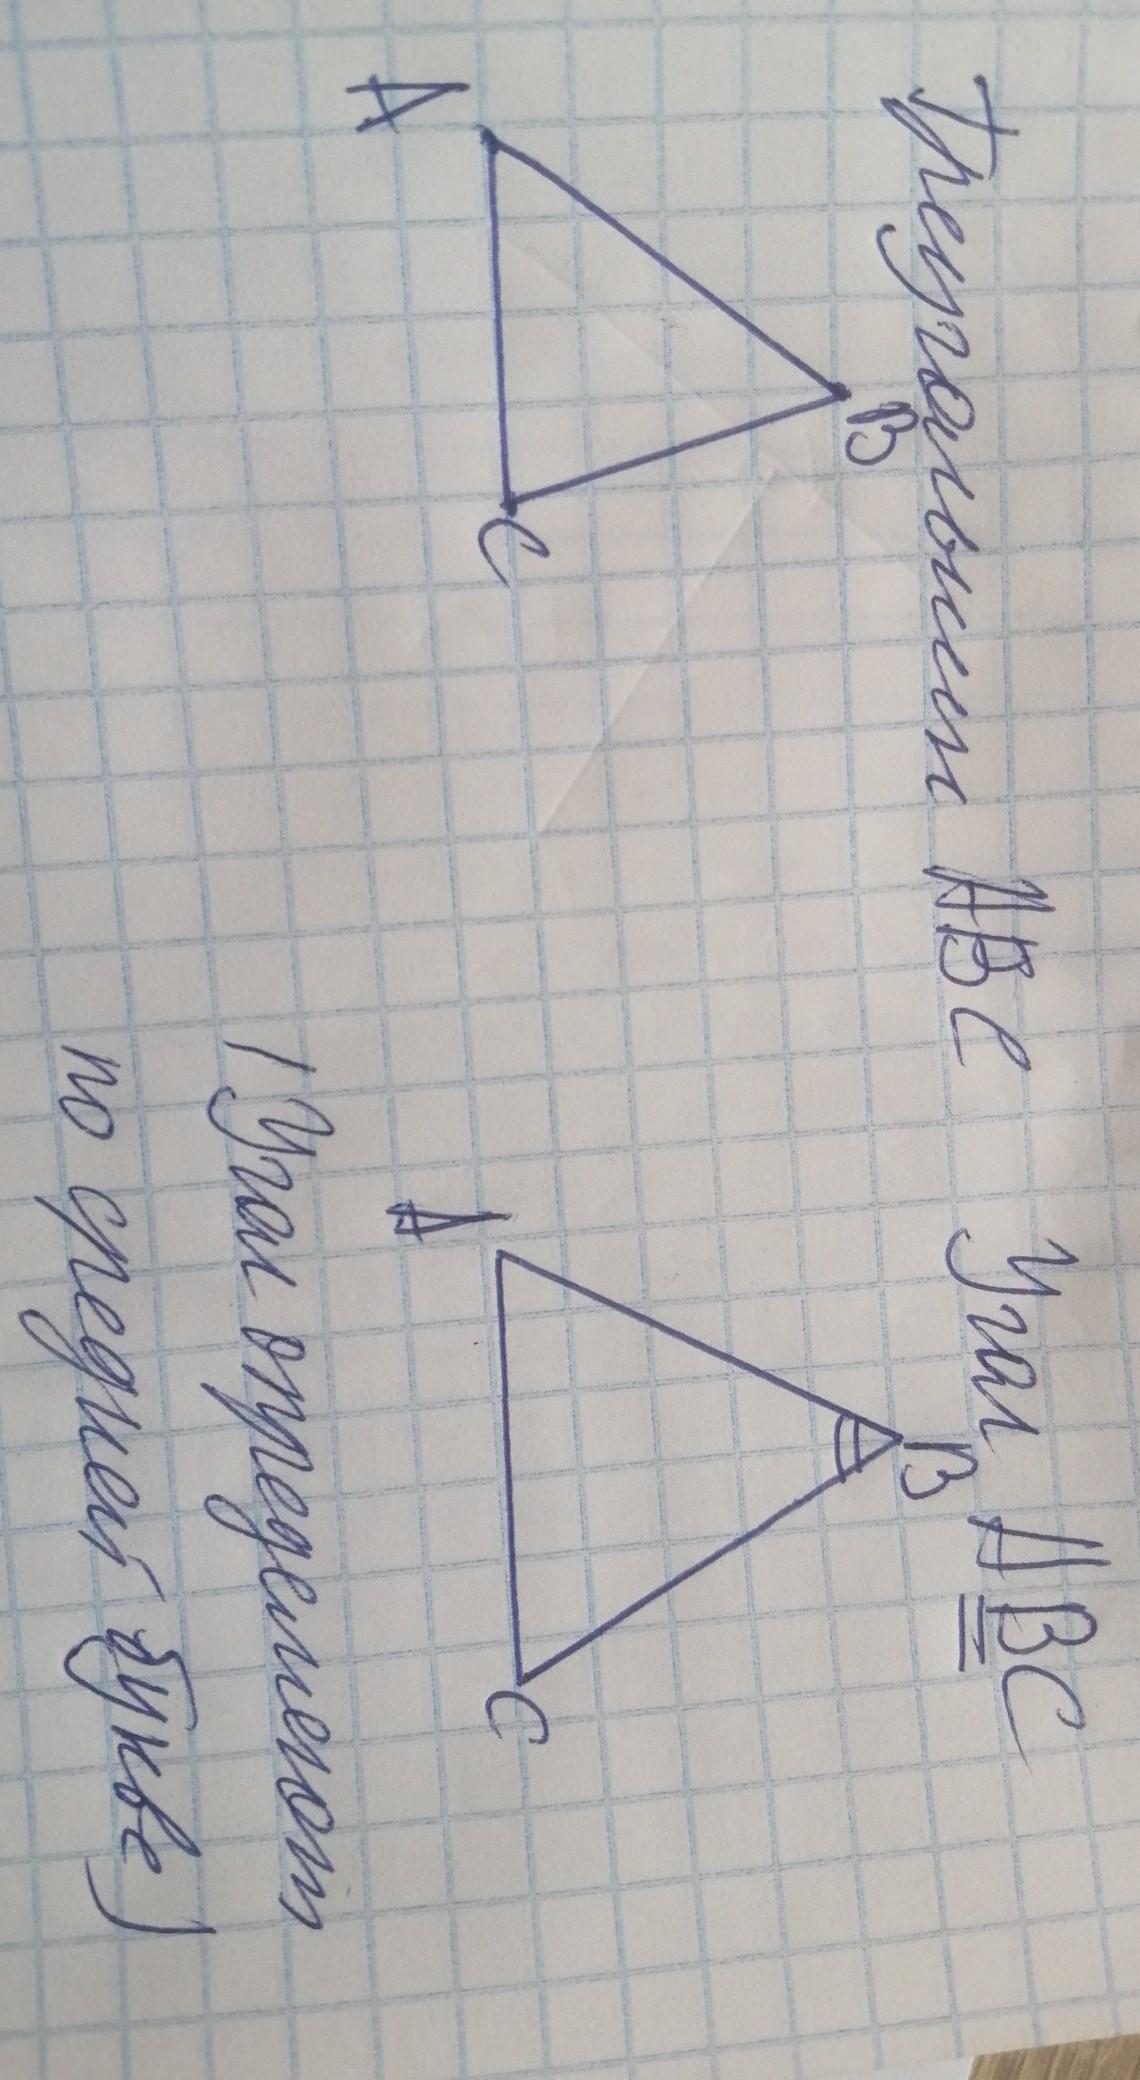 Треугольник ABC Угол ABC
B
A
C
B
A
C
(Угол определяют
по средней букве)